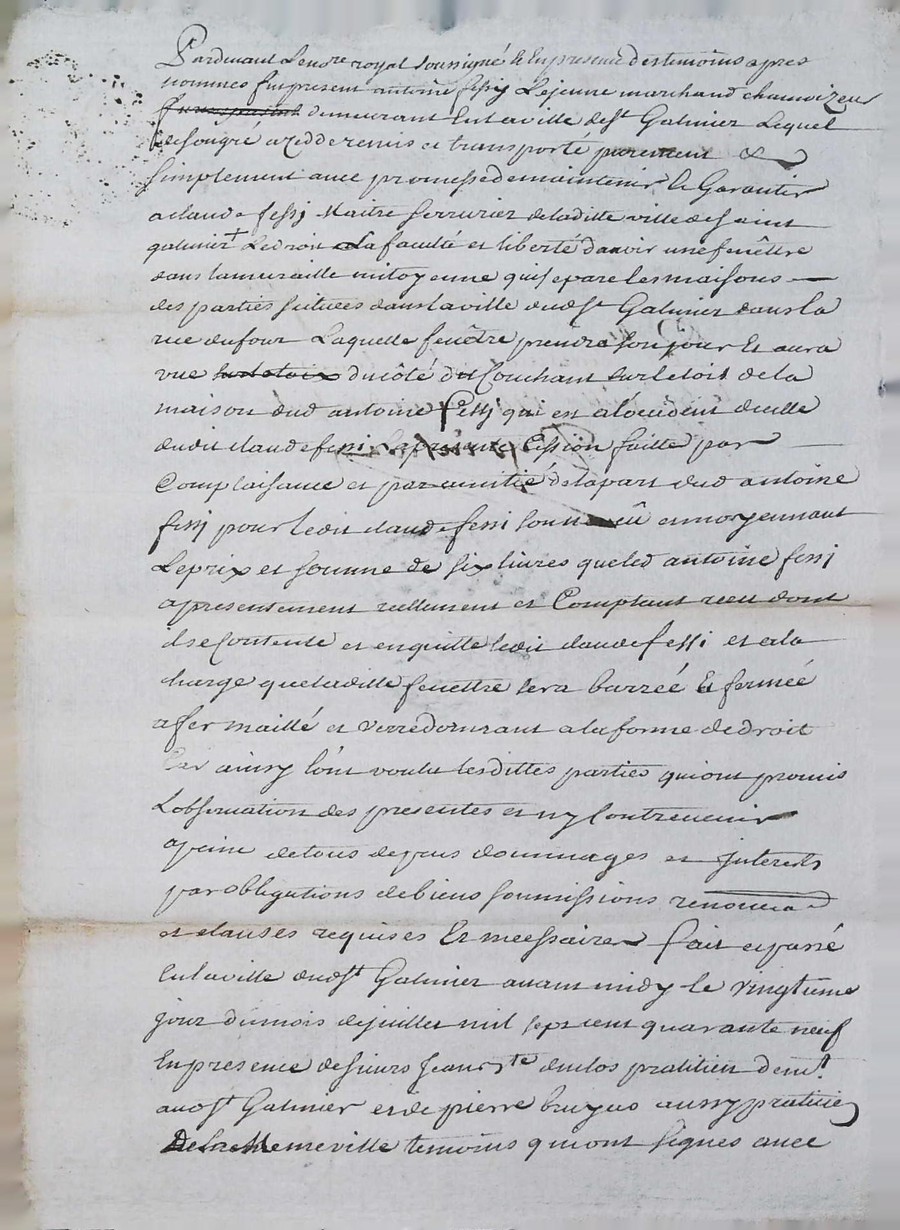 Pardevant Lenore royal soussigné & Enpresence destemoins apres
nommes fut present antoine fessy Lejeune marchand chamoizeur
demeurant Enlaville de st Galmier Lequel
desongré a cedde remis et transporté purement &
simplement avec promesse de maintenir & Garantir
a claude fessi Maitre serrurier deladitte ville de saint
galmier + Ledroit La faculté et liberté davoir une fenêttre
dans lamuraille mitoyenne quisepare les maisons
des parties scituées dans laville dudst Galmier dans la
rue dufour Laquelle fenêtre prendra son jour Et aura
vue ducôté du Couchant surletoit de la
maison dud antoine fessi qui est aloccident decelle
dudit claude fessi Lapresente Cession faitte par
Complaisance et par amitié delapart dud antoine
fessi pour ledit claude fessi et moyennant
Leprix et somme de six livres queled antoine fessi
apresentement reellement et Comptant receu dont
il se Contente et enquitte ledit claude fessi et ala
charge queladitte fenettre sera barréé Et ferméé
a fer maillé et verredormant alaforme dedroit
Car ainsy lont voulu lesdittes parties quiont promis
Lobservation des presentes et ny Contrevenir
apeine detous depens dommages et Interests
par obligations debiens soumissions renoncia
et clauses requises Et necessaires fait et passé
Enlaville dudst Galmier avant midy le vingtieme
jour dumois dejuillet mil sept cent quarante neuf
Enpresence desieurs Jean Bte duclos praticien demt
audst Galmier et de pierre bruyas aussy praticien
Delamemeville temoins quiont signes avec